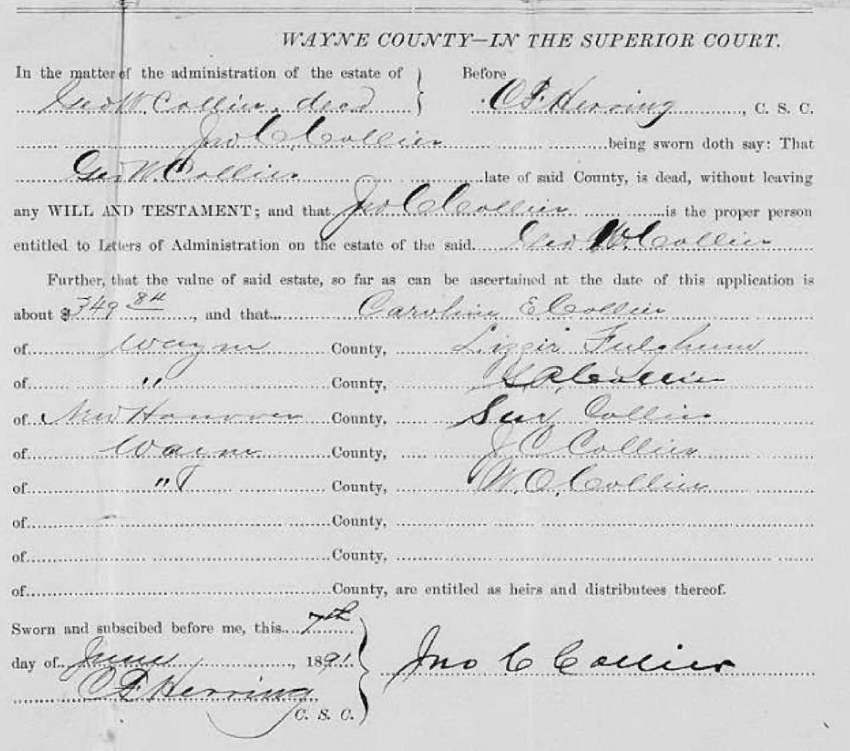 WAYNE COUNTY—IN THE SUPERIOR COURT.
In the matter of the administration of the estate of } Before
Geo W. Collier, decd } O F Herring, C. S. C.
Jno C. Collier being sworn doth say: That
Geo W Collier late of said County, is dead, without leaving
any WILL AND TESTAMENT; and that Jno C Collier is the proper person
entitled to Letters of Administration on the estate of the said Geo W. Collier
Further, that the value of said estate, so far as can be ascertained at the date of this application is
about $349 84, and that Caroline E Collier
of Wayne County, Lizzie Fulghum
of " County, Collier
of New Hanover County, Collier
of Wayne County, J C Collier
of " County, W. O. Collier
of County,
of County,
of County, are entitled as heirs and distributees thereof.
Sworn and subscibed before me, this 7th
day of June, 1891 } Jno C Collier
O F Herring
C. S. C.